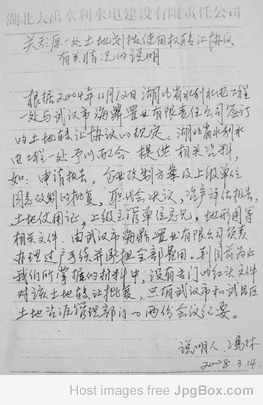 湖北大禹水利水电建设有限责任公司
关于原一处土地划拨使用权转让协议
有关情况的说明
根据2004年11月12日湖北省水利水电工程
一处与武汉市海鼎置业有限责任公司签订
的土地转让协议的规定。湖北省水利水
电工程一处予以配合提供相关资料,
如:申请报告,企业改制方案及上级单位
同意改制的批复,职代会决议,资产评估报告,
土地使用证,上级主管单位意见,地形图等
相关文件。由武汉市海鼎置业有限公司负责
办理过户手续并承担全部费用。到目前为止
我们所掌握的材料中,没有专门的红头文件
对该土地转让批复,只有武汉市和
土地管理部门的两份会议纪要。
说明人:冯林
2008.3.14.
Host images free at JpgBox.com